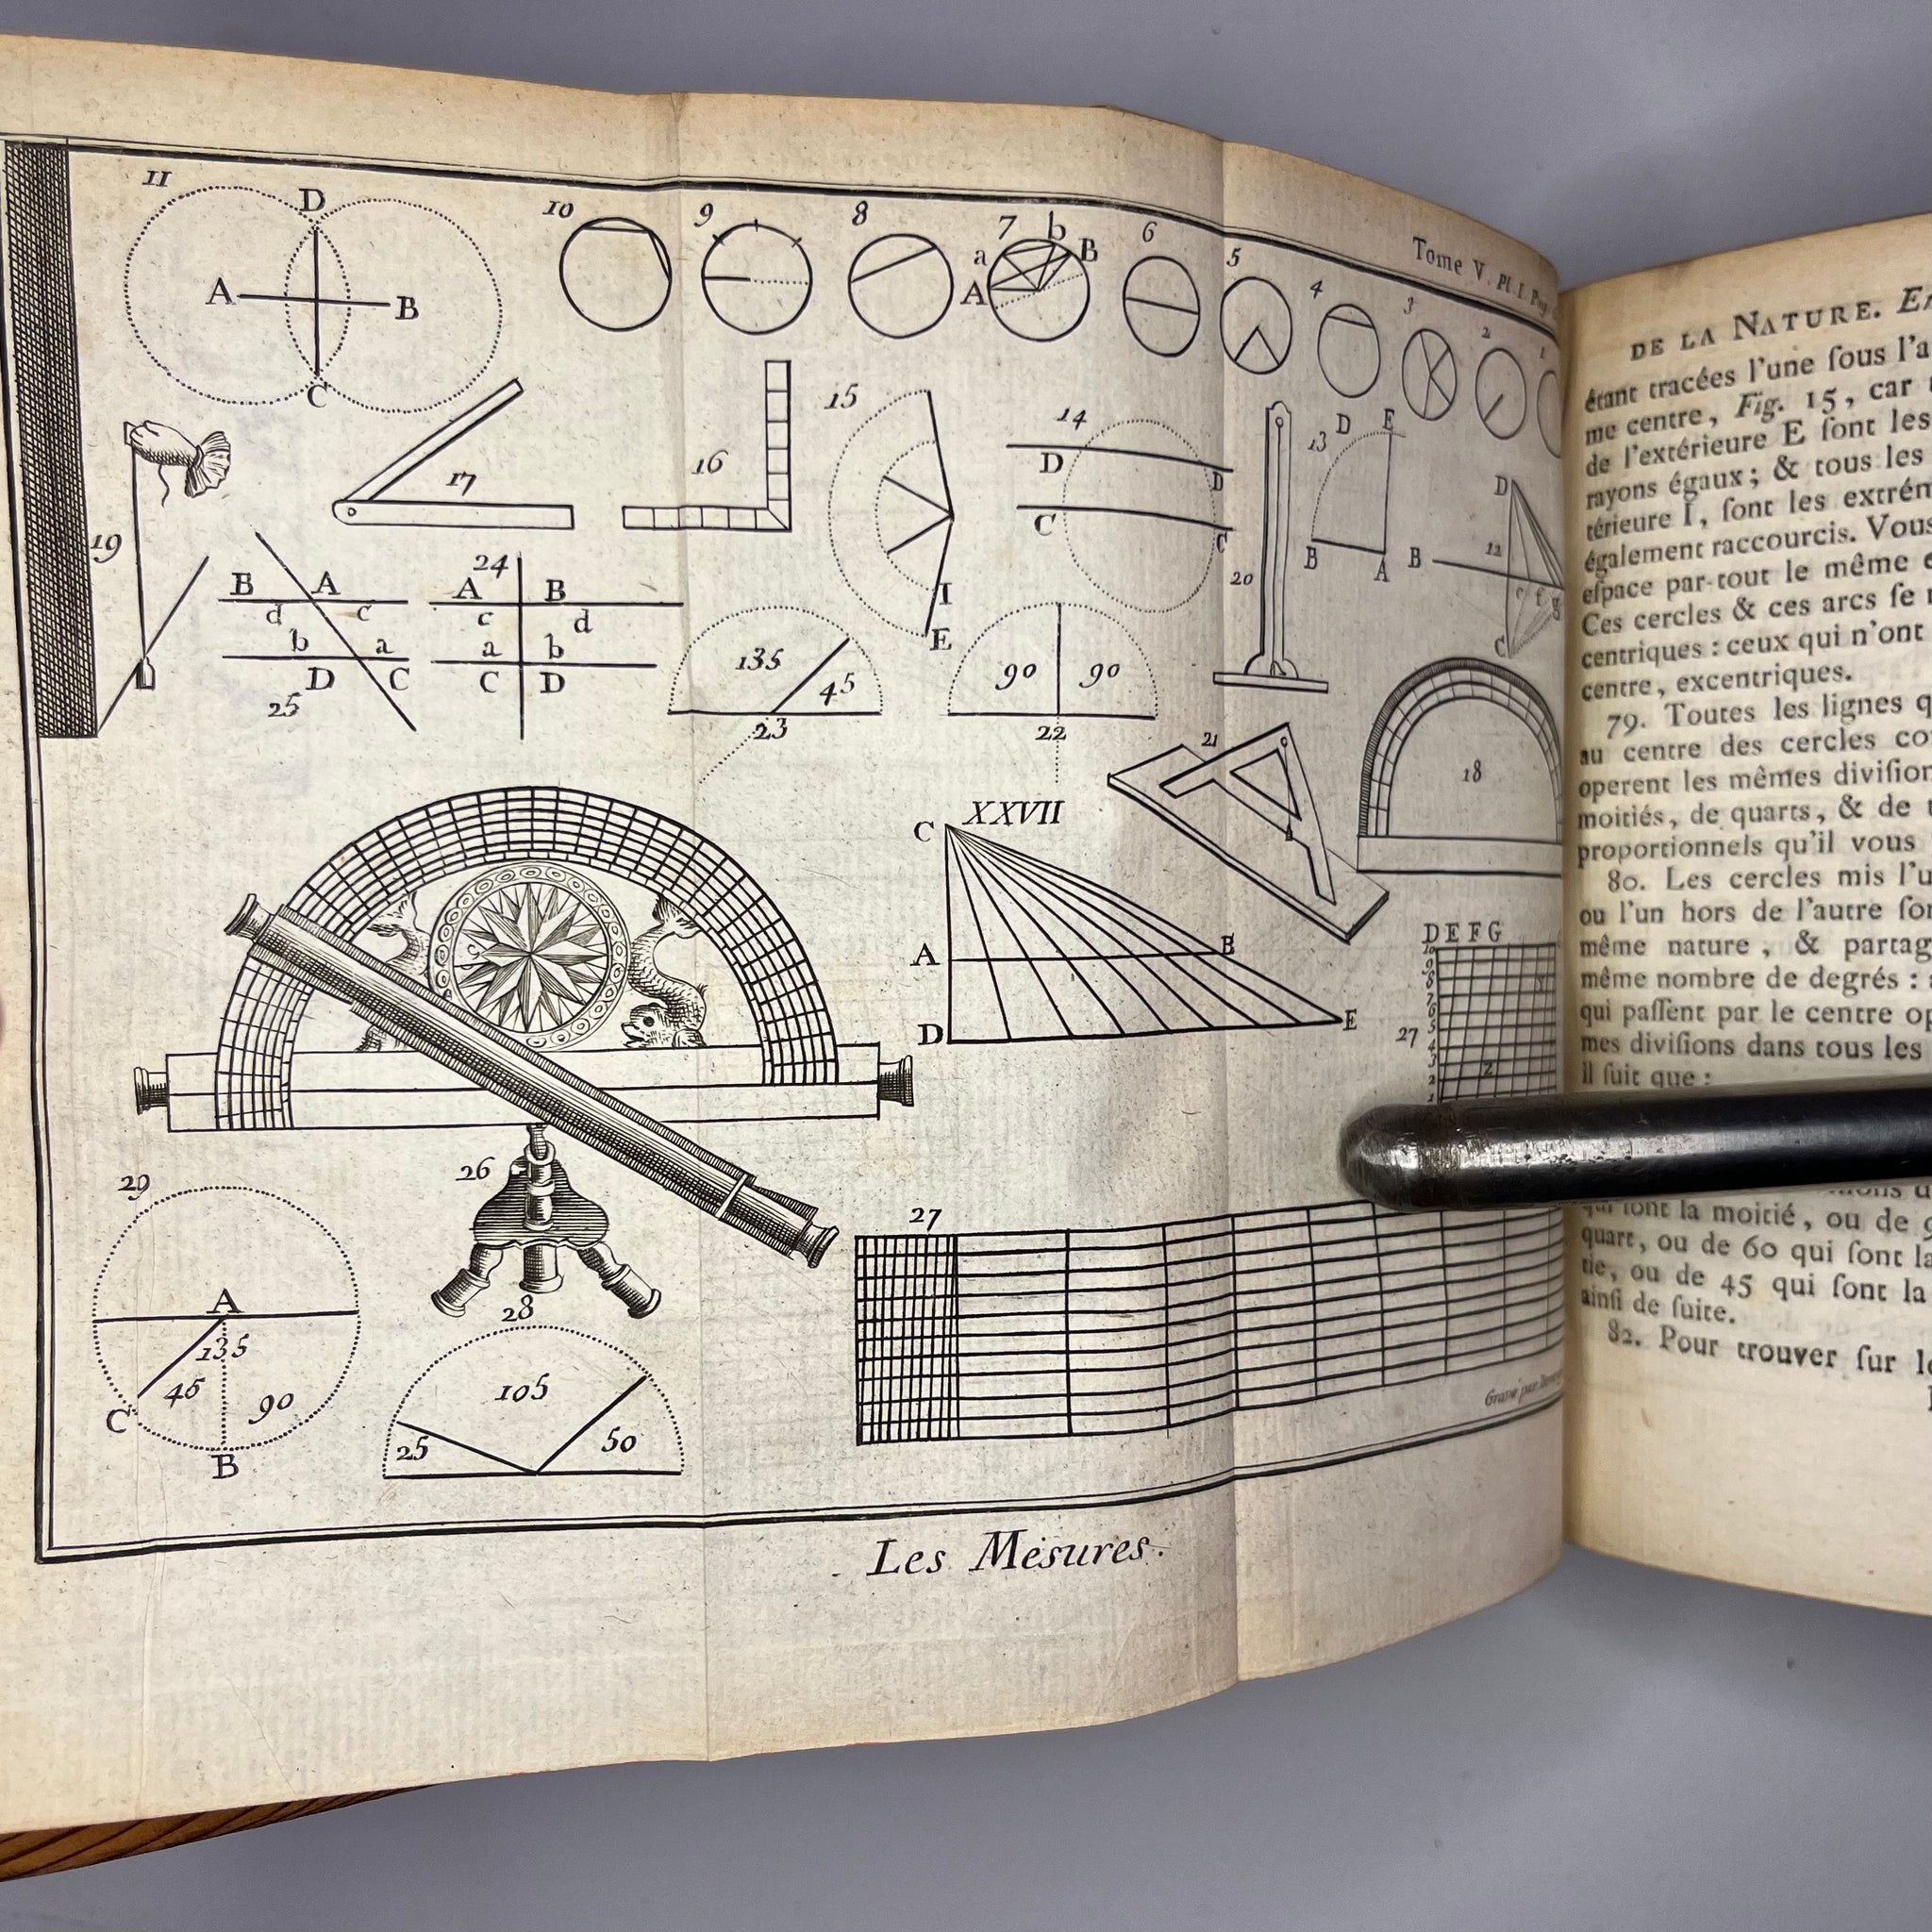 Tome V. Pl. I.
11
10
9
8
7
6
5
4
3
2
1
D
A
B
C
a
b
A
B
19
17
16
15
I
E
14
D
D
C
C
20
13
D
E
B
A
D
B
12
e f g
C
B
A
d
c
b
a
D
C
25
24
A
B
c
d
a
b
C
D
135
45
23
90
90
22
21
18
C
XXVII
A
B
D
E
D E F G
10
9
8
7
6
5
4
3
2
1
27
Z
26
29
A
135
45
90
C
B
28
105
25
50
27
Gravé par
Les Mesures.
DE LA NATURE.
étant tracées l'une ſous l'a
me centre, Fig. 15, car
de l'extérieure E ſont les
rayons égaux; & tous les
térieure I, ſont les extrém
également raccourcis. Vous
eſpace par-tout le même
Ces cercles & ces arcs ſe
centriques: ceux qui n'ont
centre, excentriques.
79. Toutes les lignes q
au centre des cercles co
operent les mêmes diviſion
moitiés, de quarts, & de
proportionnels qu'il vous
80. Les cercles mis l'u
ou l'un hors de l'autre ſon
même nature, & partag
même nombre de degrés:
qui paſſent par le centre op
mes diviſions dans tous les
il ſuit que:
qui ſont la moitié, ou de 9
quart, ou de 60 qui ſont la
tie, ou de 45 qui ſont la
ainſi de ſuite.
82. Pour trouver ſur le